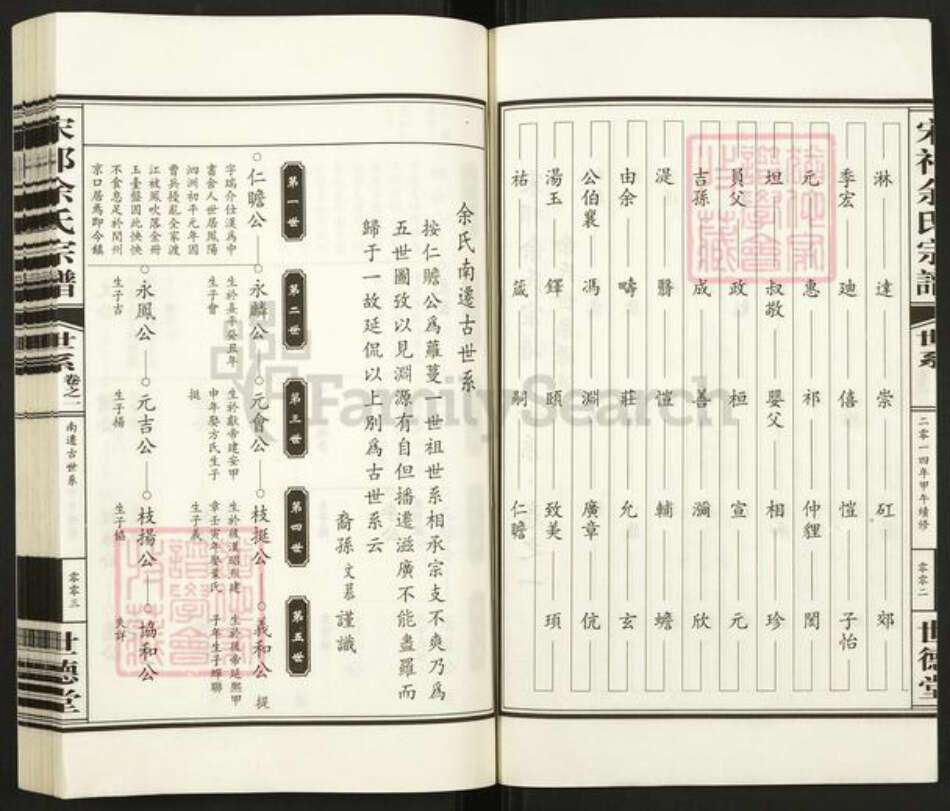 宋祁余氏宗譜
世系
二零一四年甲午續修
零零二
世德堂
淋 達 崇 矼 郊
季宏 廸 僖 愷 子怡
元 惠 祁 仲貍 閏
坦 叔敖 嬰父 相 珍
員父 政 桓 宣 元
吉孫 成 善 瀰 欣
湜 翳 愷 輔 蟾
由余 疇 莊 允 玄
公伯襄 馮 淵 廣章 伉
湯玉 鐸 頤 致美 頊
祐 箴 嗣 仁瞻
余氏南遷古世系
按仁瞻公爲蘿蔓一世祖世系相承宗支不爽乃爲
五世圖攷以見淵源有自但播遷滋廣不能盡羅而
歸于一故延侃以上別爲古世系云
裔孫文慕謹識
第一世
第二世
第三世
第四世
第五世
仁瞻公
字瑞介仕漢爲中
書舍人世居鳳陽
泗洲初平元年因
曹兵擾亂全家渡
江被風吹落金冊
玉臺盤因此怏怏
不食息足於閏州
京口居焉即今鎮
永麟公
生於熹平癸丑年
生子會
元會公
生於獻帝建安甲
申年娶方氏生子
挺
枝挺公
生於後漢昭烈建
章壬寅年娶葉氏
生子義
義和公 挺
生於後帝延熙甲
子年生子輝聯
永鳳公
生子吉
元吉公
生子楊
枝揚公
生子協
協和公
失詳
宋祁余氏宗譜
世系
卷之一
南遷古世系
零零三
世德堂
FamilySearch